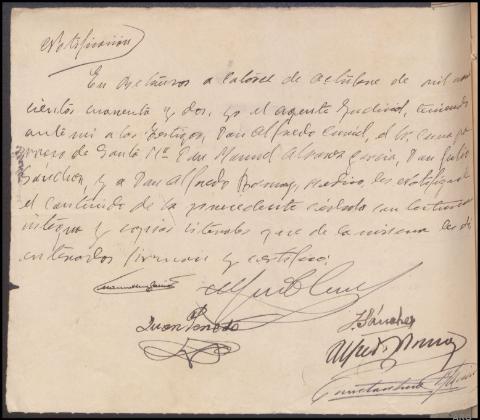 Notificación
En a catorce de octubre de mil nove
cientos cuarenta y dos, yo el agente Judicial, teniendo
ante mi a los testigos, Don Alfredo , al Sr. Cura pá
rroco de Santa Mª Don Manuel Alvarez García, Don Julio
Sánchez, y a Don Alfredo , Medico, les notifiqué
el contenido de la precedente cédula con lectura
integra y copias literales que de la misma les di
enterados firman y certifico:
Alfredo
Juan
J. Sánchez
Alfredo